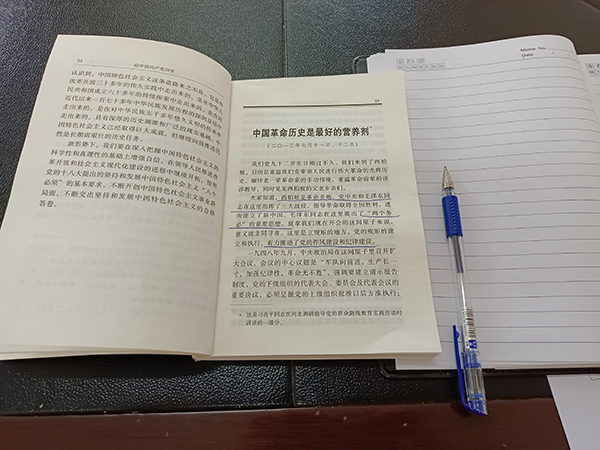 22
论中国共产党历史
认识到，中国特色社会主义这条道路来之不易，它是在
改革开放三十多年的伟大实践中走出来的，是在中华人
民共和国成立六十多年的持续探索中走出来的，是在对
近代以来一百七十多年中华民族发展历程的深刻总结中
走出来的，是在对中华民族五千多年悠久文明的传承中
走出来的，具有深厚的历史渊源和广泛的现实基础。中
国特色社会主义已经取得巨大成就，但继续向前推进仍
然是长期而艰巨的任务。
新形势下，我们要在深入把握中国特色社会主义的
科学性和真理性的基础上增强自信，在带领人民推进改
革开放和社会主义现代化建设的进程中继续开拓，按照
党的十八大提出的坚持和发展中国特色社会主义“八个
必须”的基本要求，不断开创中国特色社会主义事业新
局面，不断交出坚持和发展中国特色社会主义的合格
答卷。
23
中国革命历史是最好的营养剂*
（二〇一三年七月十一日、十二日）
我们党九十二岁生日刚过不久，我们来到了西柏
坡，目的是重温我们党领导人民进行伟大革命的光辉历
史，缅怀老一辈革命家的丰功伟绩，重温革命前辈的谆
谆教导，同时见见西柏坡的父老乡亲们。
大家知道，西柏坡是革命圣地，党中央和毛泽东同
志在这里指挥了三大战役，指导革命取得全国胜利，进
而建立了新中国。毛泽东同志在这里提出了“两个务
必”的重要思想。就拿我们现在开会的这间屋子来说，
意义就非同寻常。这里是立规矩的地方。党的规矩的建
立和执行，有力推动了党的作风建设和纪律建设。
一九四八年九月，中央政治局在这间屋子里召开扩
大会议，会议的中心议题是“军队向前进，生产长一
寸，加强纪律性，革命无不胜”，强调要建立请示报告
制度，党的下级组织的代表大会、委员会及代表会议的
重要决议，必须呈报党的上级组织批准以后方准执行；
* 这是习近平同志在河北调研指导党的群众路线教育实践活动时
讲话的一部分。
Memo No.
Date